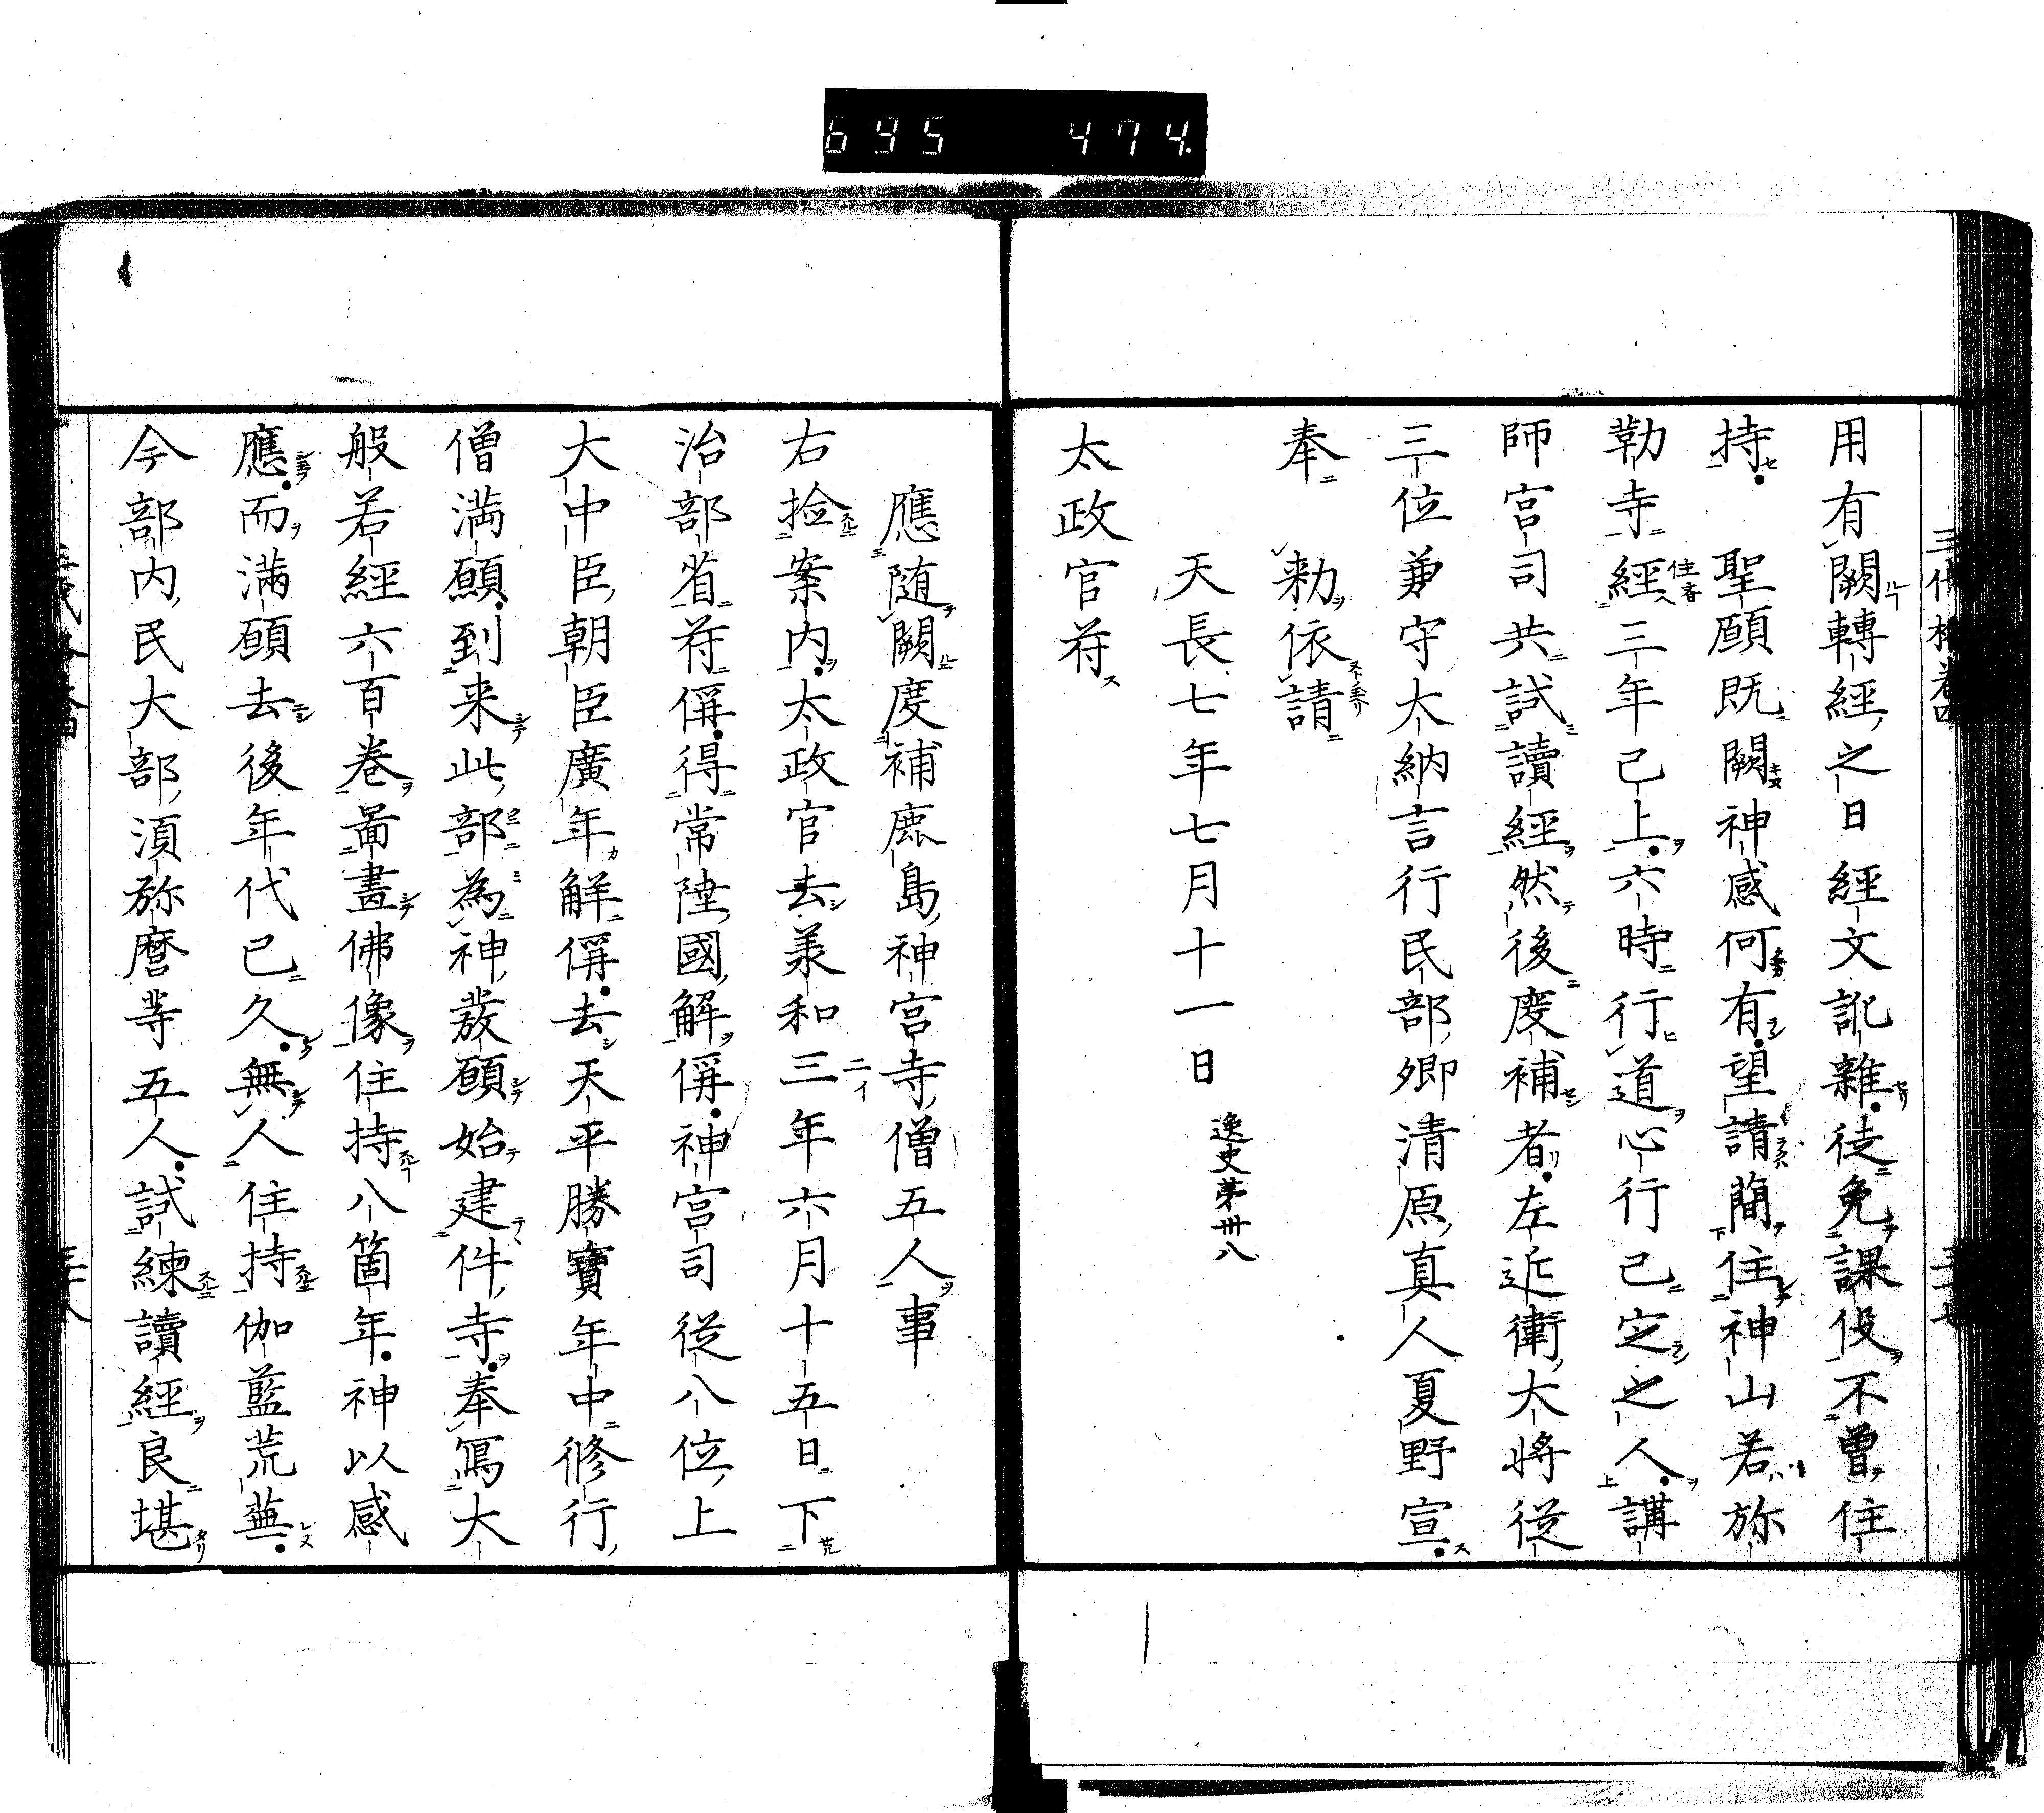 695 474
用有闕轉經之日經文訛雜徒免課役不曽住
持　聖願既闕神感何有望請簡住神山若弥
勒寺經三年已上六時行道心行已定之人講
師宮司共試讀經然後度補者左近衛大將従
三位兼守大納言行民部卿清原真人夏野宣
奉　勅依請
天長七年七月十一日　逸史第卅八
太政官符
應随闕度補鹿島神宮寺僧五人事
右撿案内太政官去羕和三年六月十五日下
治部省符偁得常陸國解偁神宮司従八位上
大中臣朝臣廣年解偁去天平勝寶年中修行
僧満願到来此部為神發願始建件寺奉寫大
般若經六百卷啚畫佛像住持八箇年神以感
應而満願去後年代已久無人住持伽藍荒蕪
今部内民大部湏弥麿等五人試練讀經良堪